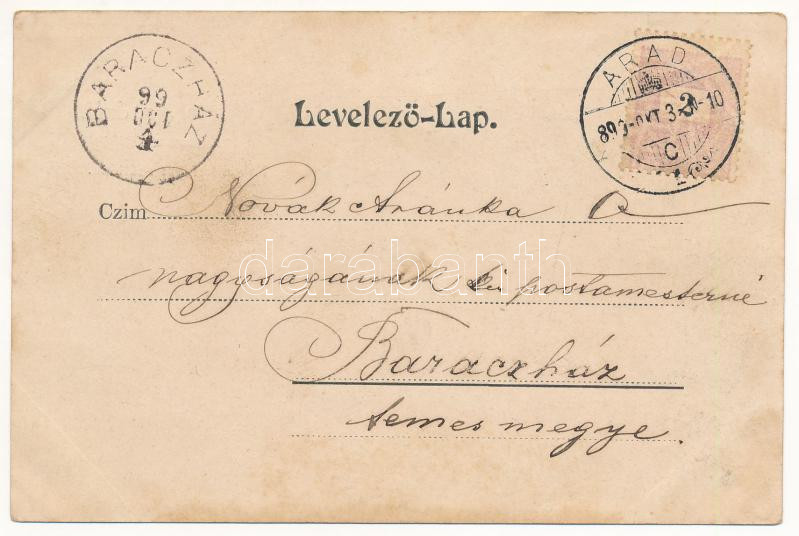 BARACZHÁZ
99
OCT
4
Levelező-Lap.
ARAD
899-OKT. 3
C
3
Czim Novák Aránka Ő
nagyságának kir postamesterné
darabanth
Baraczház
temes megye.